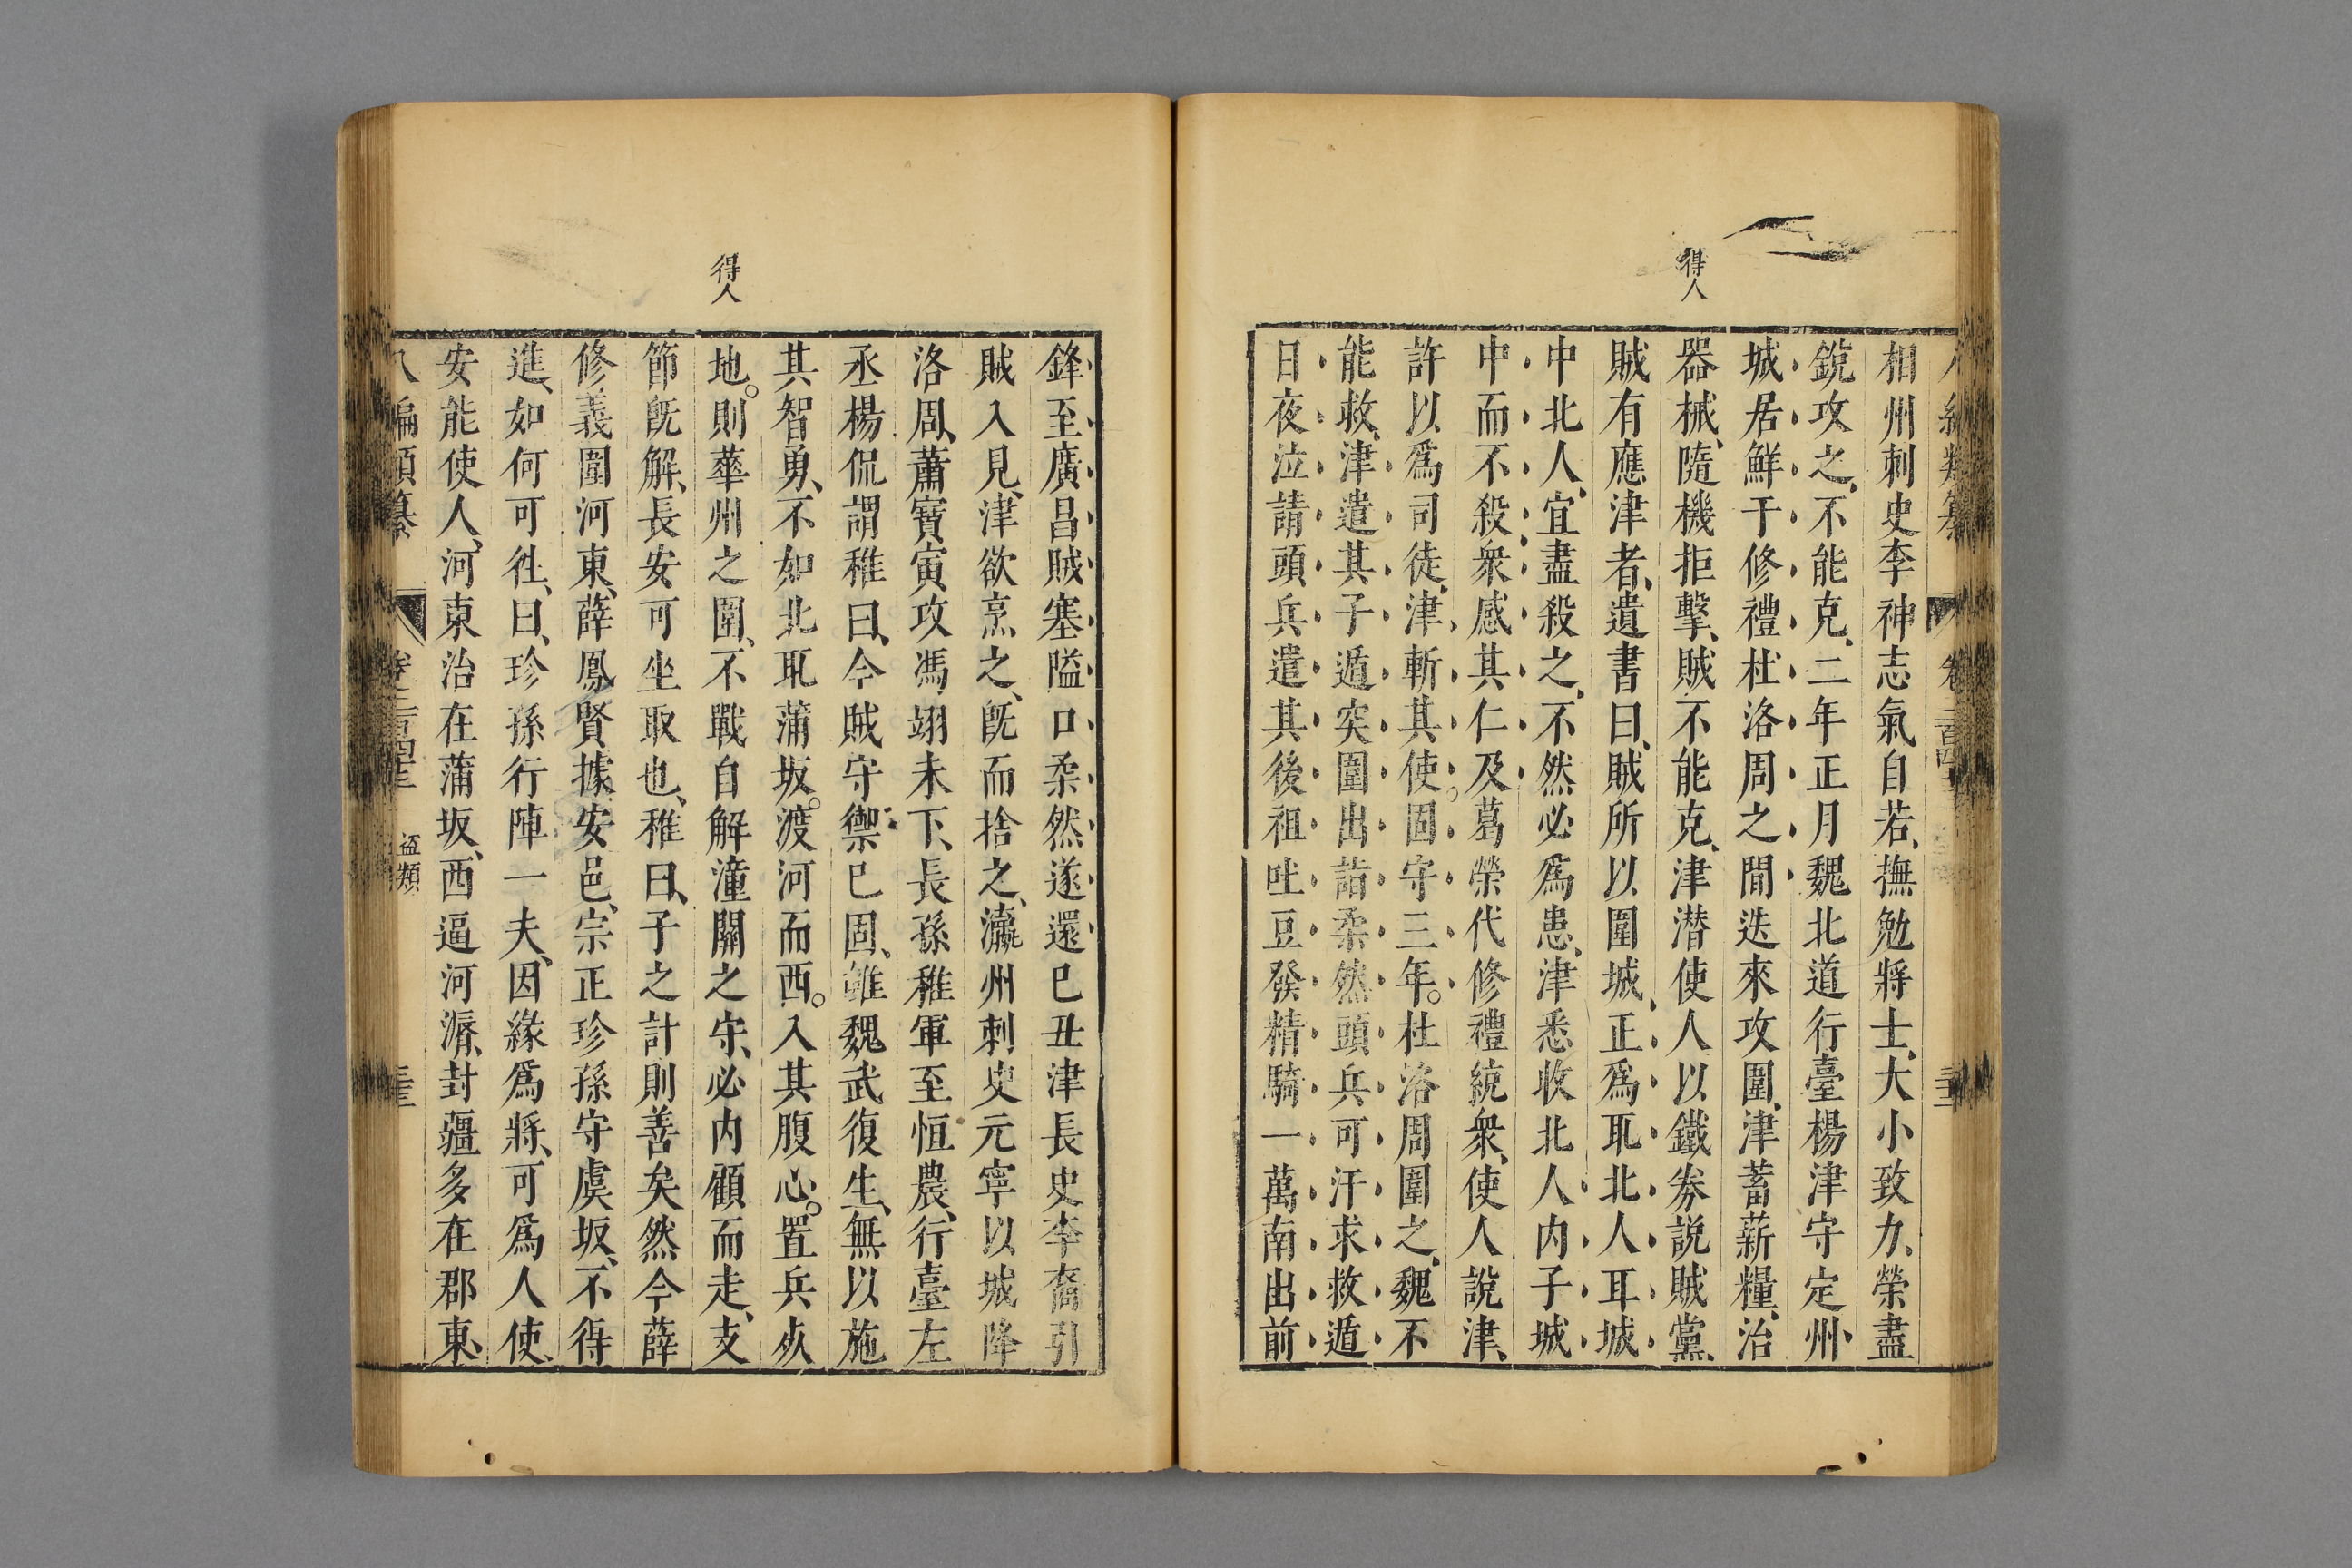 得人
相州刺史李神志氣自若、撫勉將士、大小致力、榮盡
銳攻之、不能克、二年正月魏北道行臺楊津守定州、
城、居鮮于修禮、杜洛周之間、迭來攻圍、津蓄薪糧、治
器械、隨機拒擊、賊不能克、津潛使人以鐵券說賊黨、
賊有應津者、遺書曰、賊所以圍城、正爲耴北人耳城
中北人、宜盡殺之、不然必爲患、津悉收北人内子城
中而不殺、衆感其仁、及葛榮代修禮統衆、使人說津、
許以爲司徒、津斬其使。固守三年。杜洛周圍之、魏不
能救、津遣其子遁突圍出詣柔然頭兵可汗求救、遁
日夜泣請、頭兵遣其後祖吐豆發精騎一萬南出前
得人
鋒至廣昌賊塞隘口柔然遂還巳丑津長史李裔引
賊入見、津欲烹之、旣而捨之、瀛州刺史元寧以城降
洛周、蕭寶寅攻馮翊未下、長孫稚軍至恒農、行臺左
丞楊侃謂稚曰、今賊守禦已固、雖魏武復生、無以施
其智勇、不如北耴蒲坂。渡河而西。入其腹心。置兵死
地。則華州之圍、不戰自解潼關之守、必内顧而走、支
節旣解、長安可坐取也、稚曰、子之計則善矣然今薛
修義圍河東、薛鳳賢據安邑、宗正珍孫守虞坂、不得
進、如何可徃、曰、珍孫行陣一夫、因緣爲將、可爲人使、
安能使人、河東治在蒲坂、西逼河漘、封疆多在郡東、
八編類纂　卷二百四十三　盜類